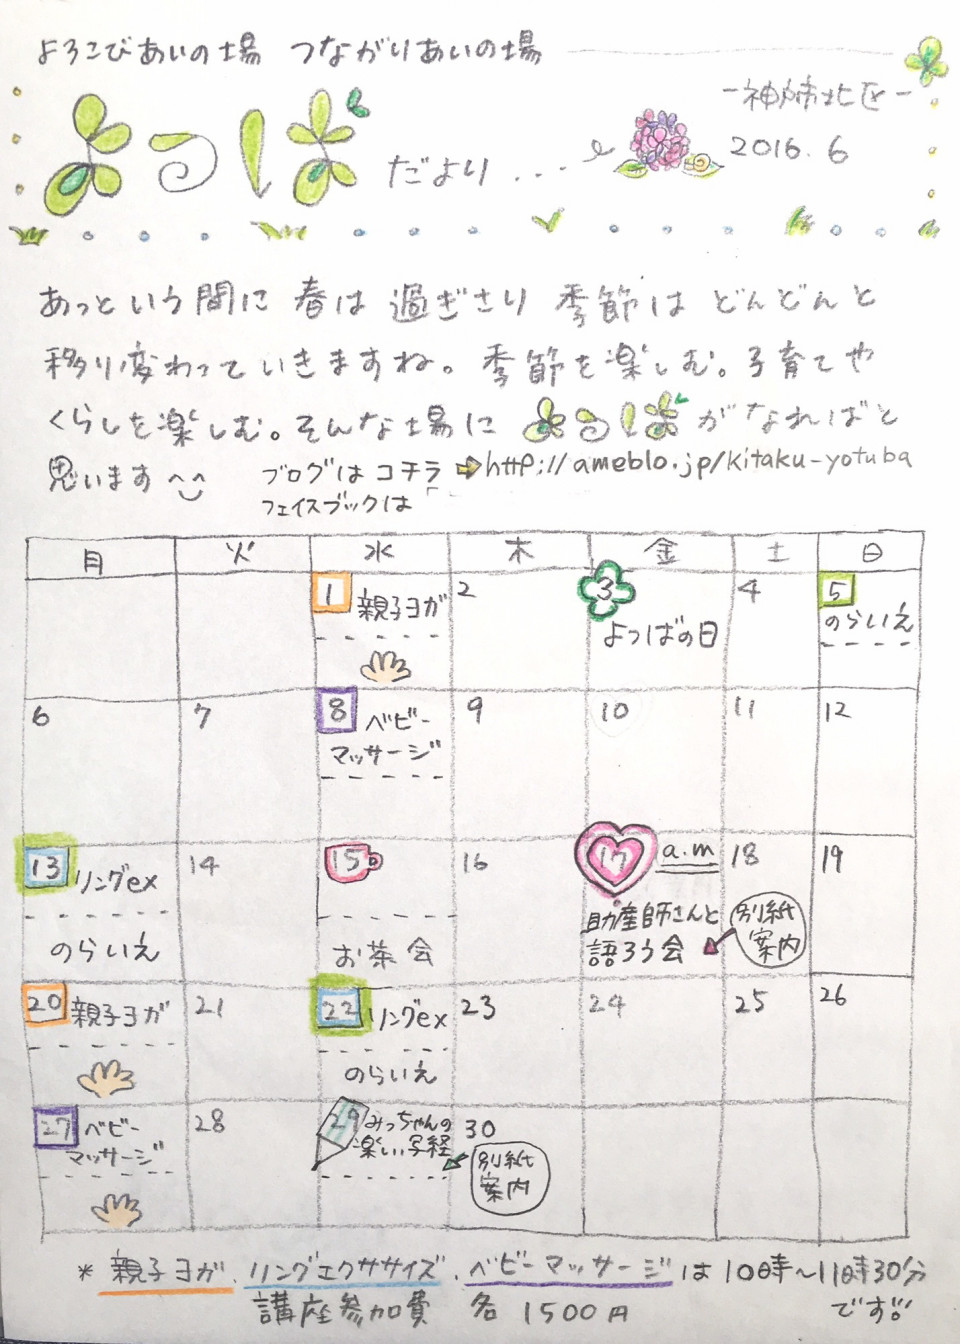 よろこびあいの場 つながりあいの場
-神姉北区-
よつばだより...
2016.6
あっという間に 春は 過ぎさり 季節は どんどんと
移り変わっていきますね。季節を楽しむ。子育てや
くらしを楽しむ。そんな場に よつば がなればと
思います ^^
ブログは コチラ ➡http://ameblo.jp/kitaku-yotuba
フェイスブックは「
月 火 水 木 金 土 日
1 親子ヨガ 2 3 よつばの日 4 5 のらいえ
6 7 8 ベビーマッサージ 9 10 11 12
13 リングex のらいえ 14 15 お茶会 16 17 a.m 助産師さんと語ろう会 別紙案内 18 19
20 親子ヨガ 21 22 リングex のらいえ 23 24 25 26
27 ベビーマッサージ 28 29 みっちゃんの楽しい写経 別紙案内 30
* 親子ヨガ、リングエクササイズ、ベビーマッサージは 10時〜11時30分
です!!
講座参加費 各 1500円